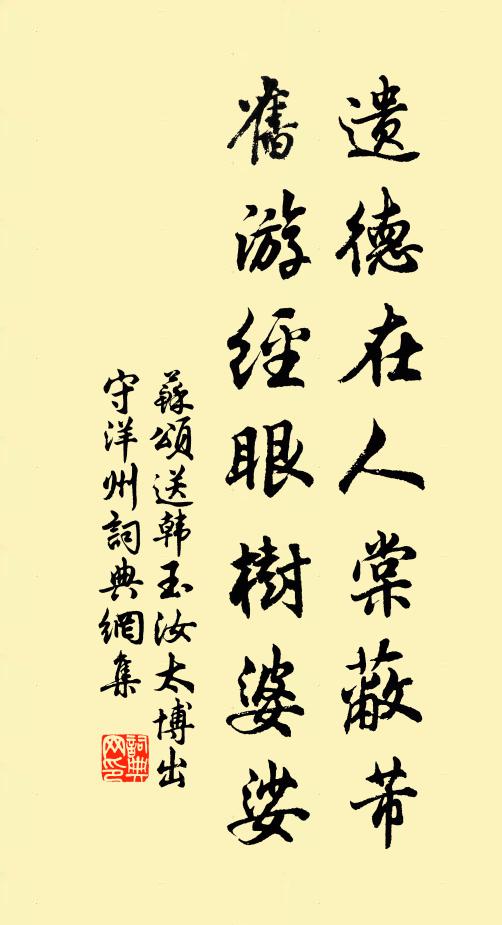 遗德在人棠蔽芾
舊游經眼樹婆娑
蘇頌送韩玉汝太博出
守洋州詞典網集
詞典
网印